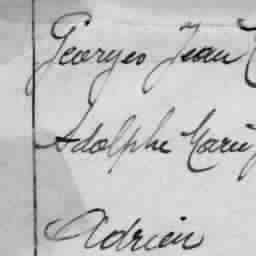 Georges Jean
Adolphe Marie
Adrien